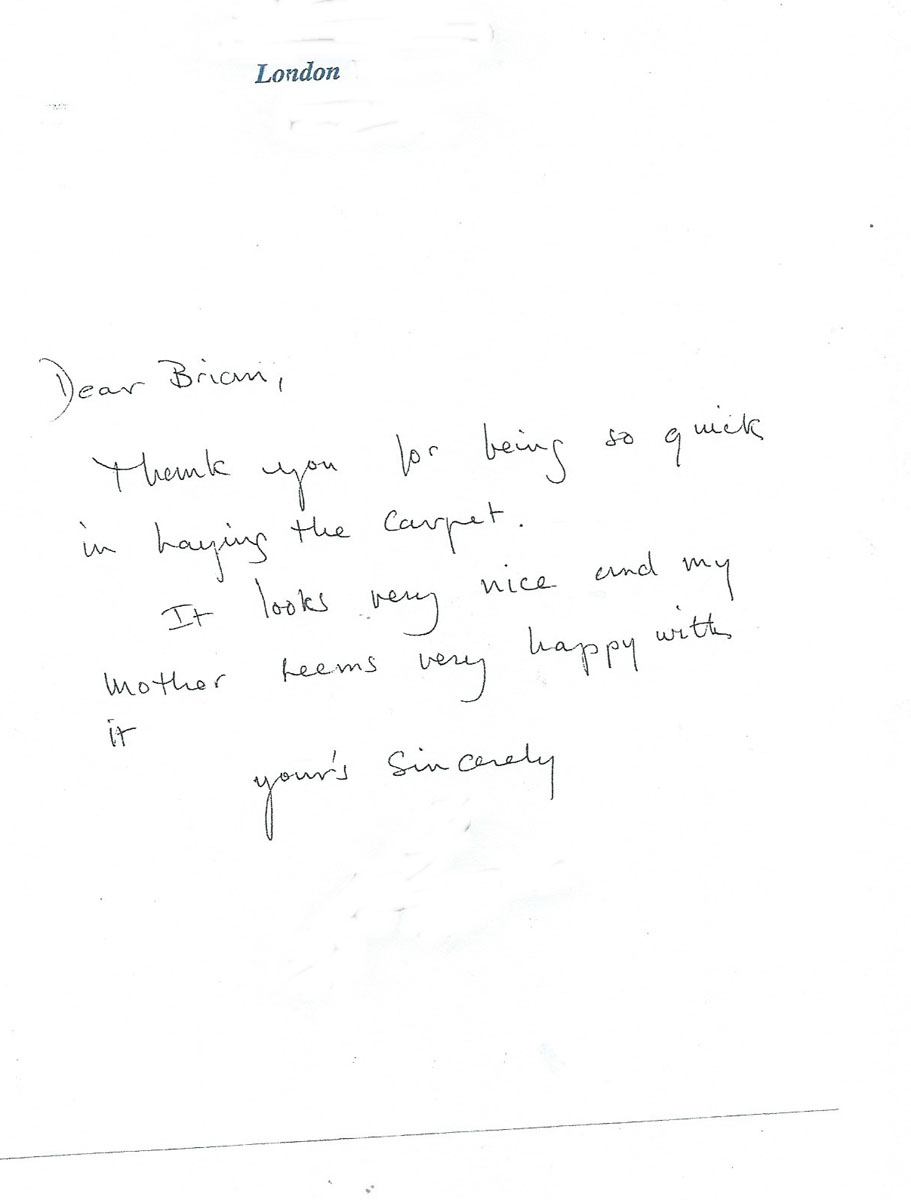 London
Dear Brian,
Thank you for being so quick
in laying the carpet.
It looks very nice and my
Mother seems very happy with
it
your's Sincerely